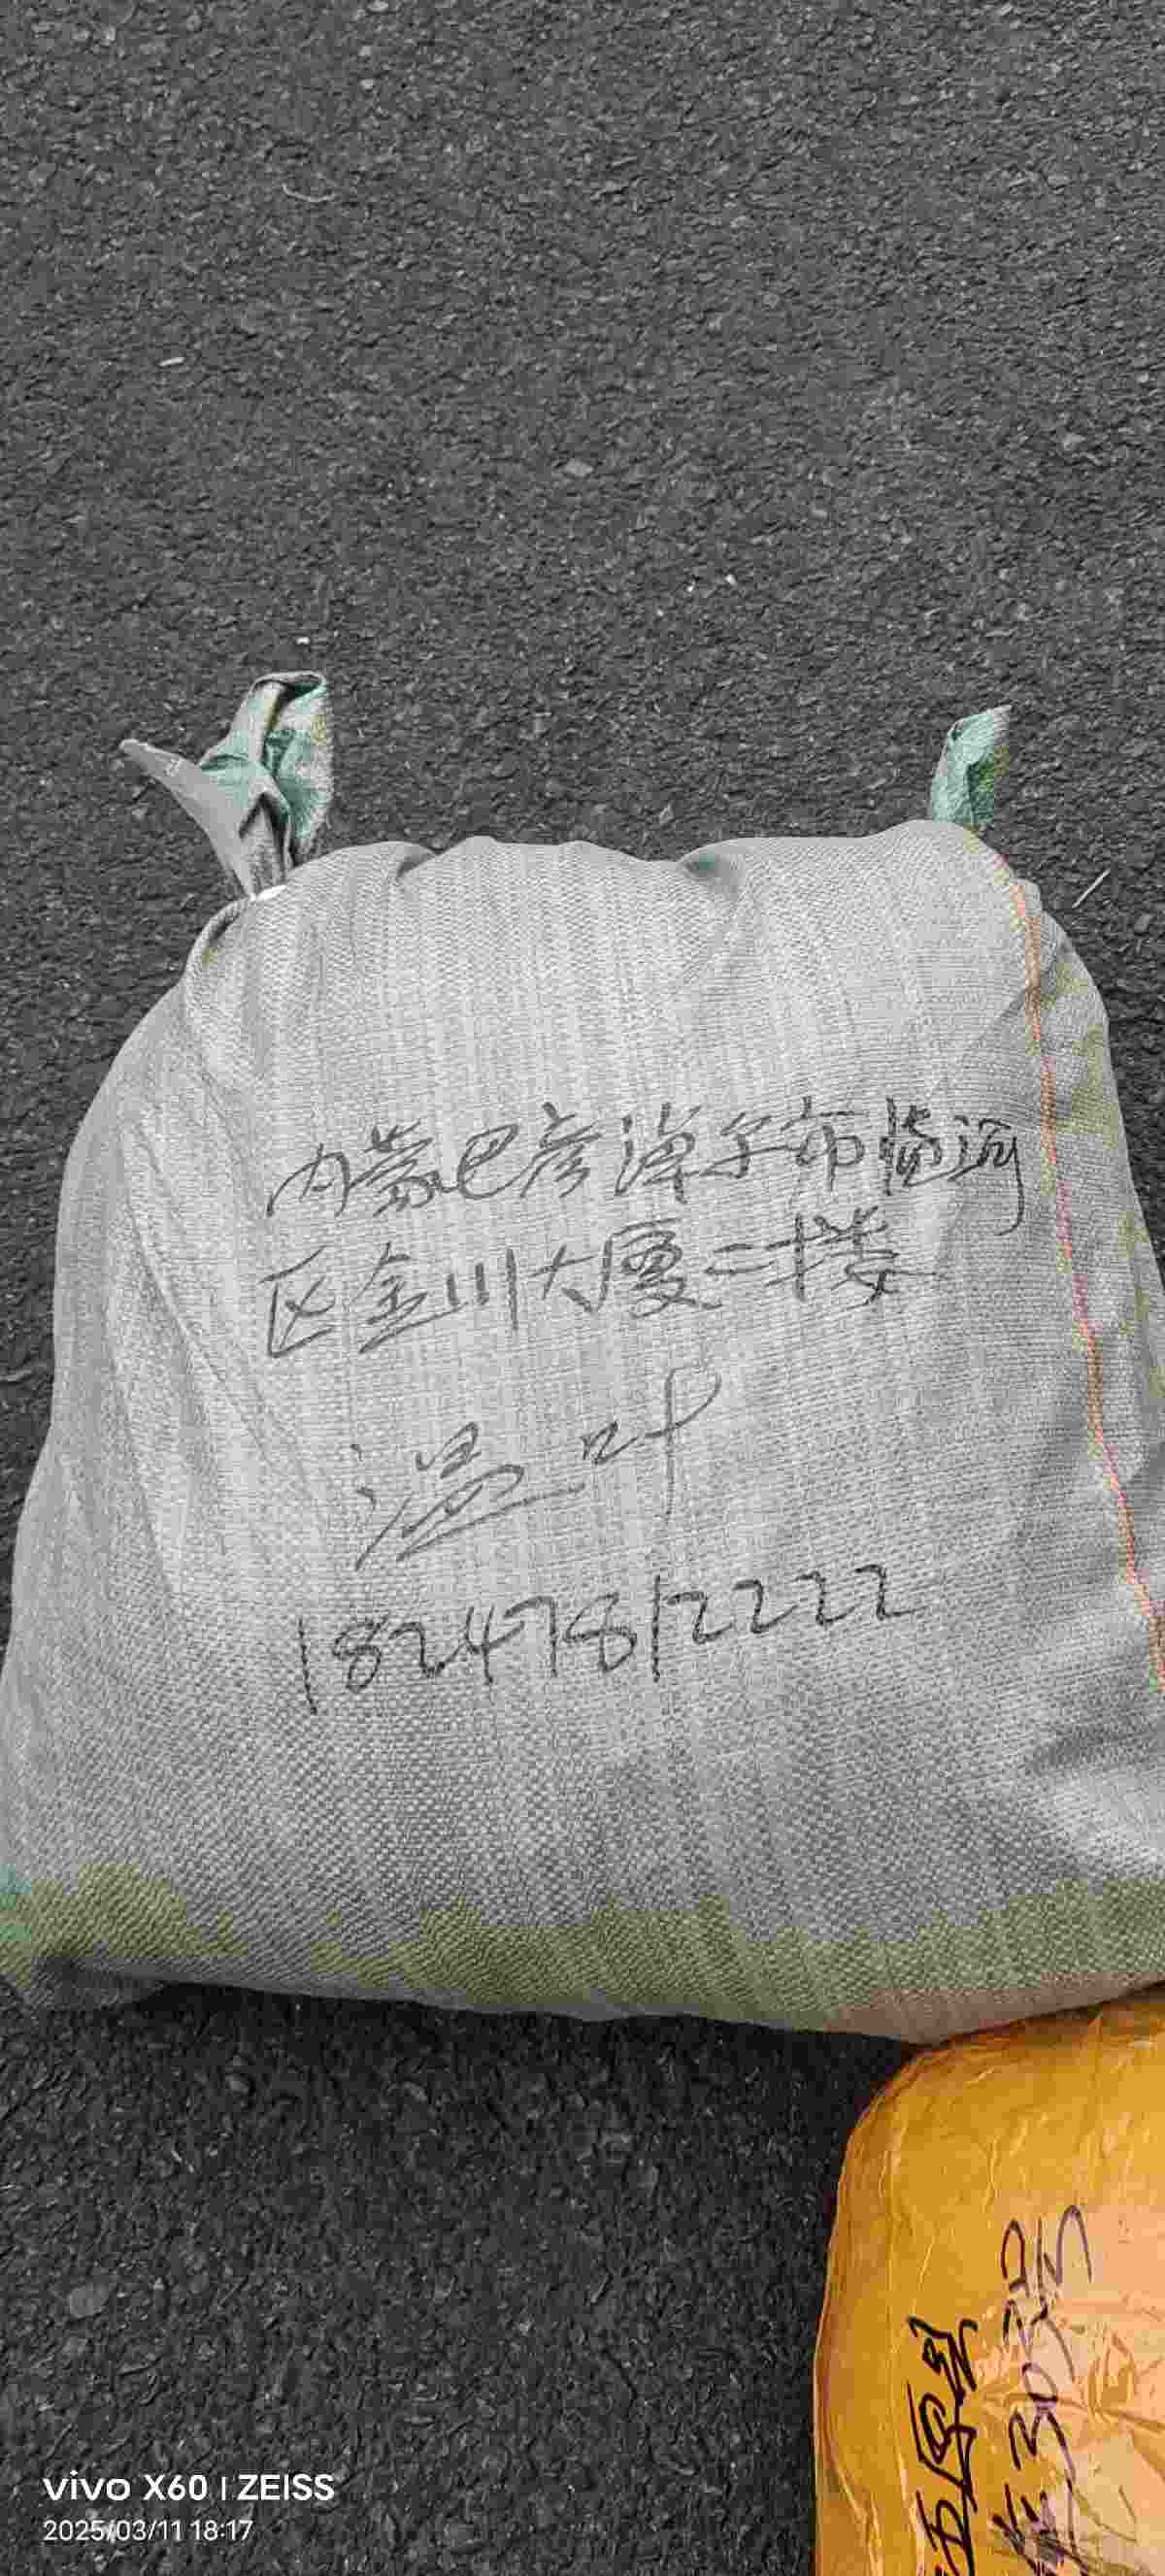 内蒙巴彦淖尔市临河
区金川大厦二十楼
温叶
18247812222
vivo X60 | ZEISS
2025/03/11 18:17